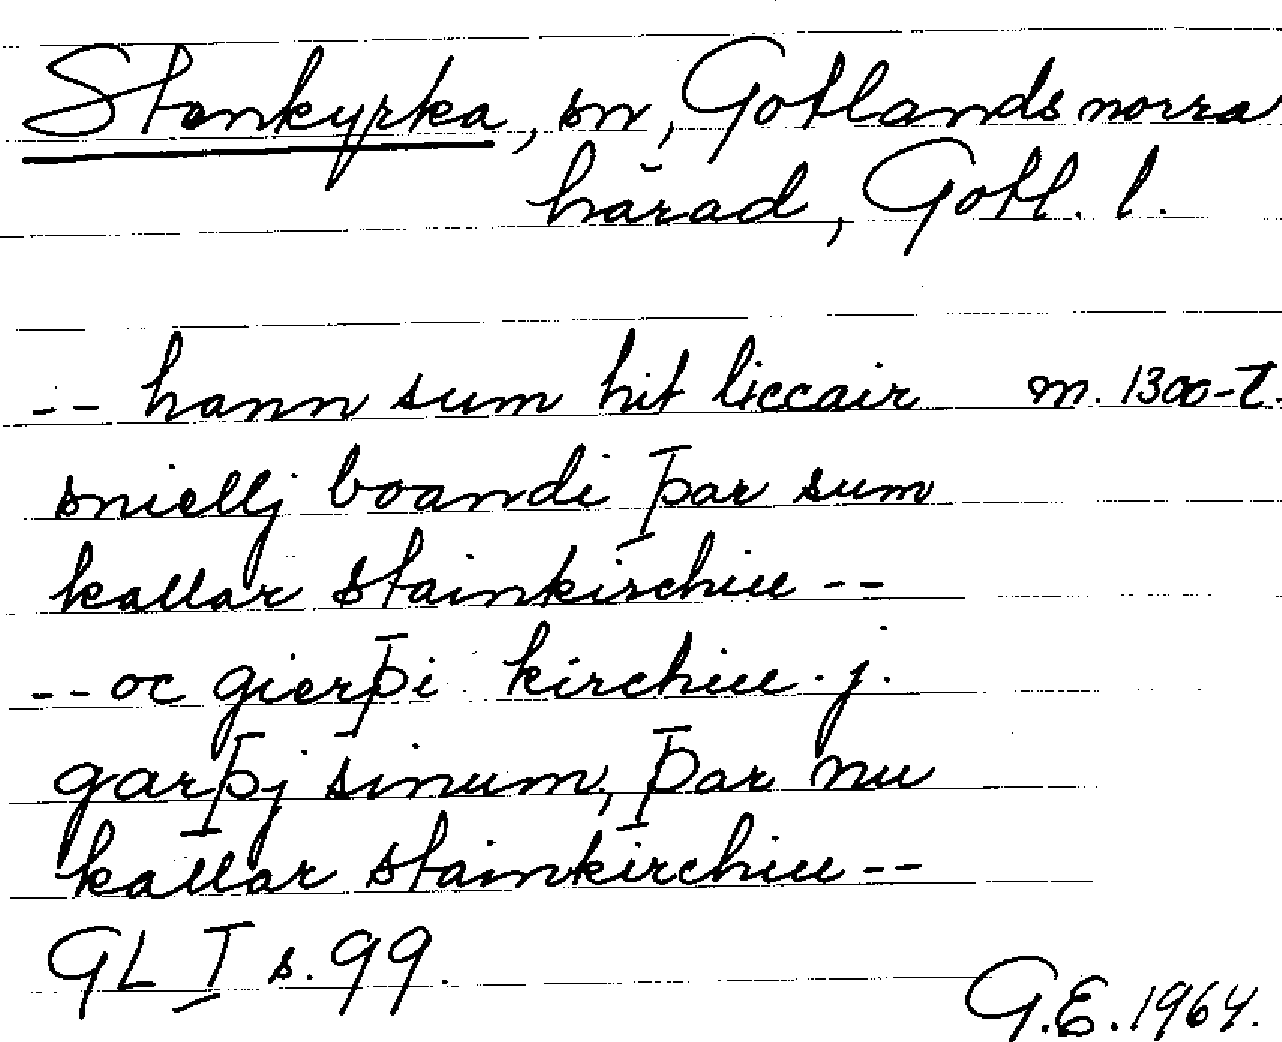 Stenkyrka, sn, Gotlands norra
härad, Gotl. l.
-- hann sum hit liccair m. 1300-t.
snielli boandi þar sum
kallar stainkirchiu --
-- oc gierþi kirchiu . j .
garþj sinum, þar nu
kallar stainkirchiu --
GL I s. 99.
G.E. 1964.